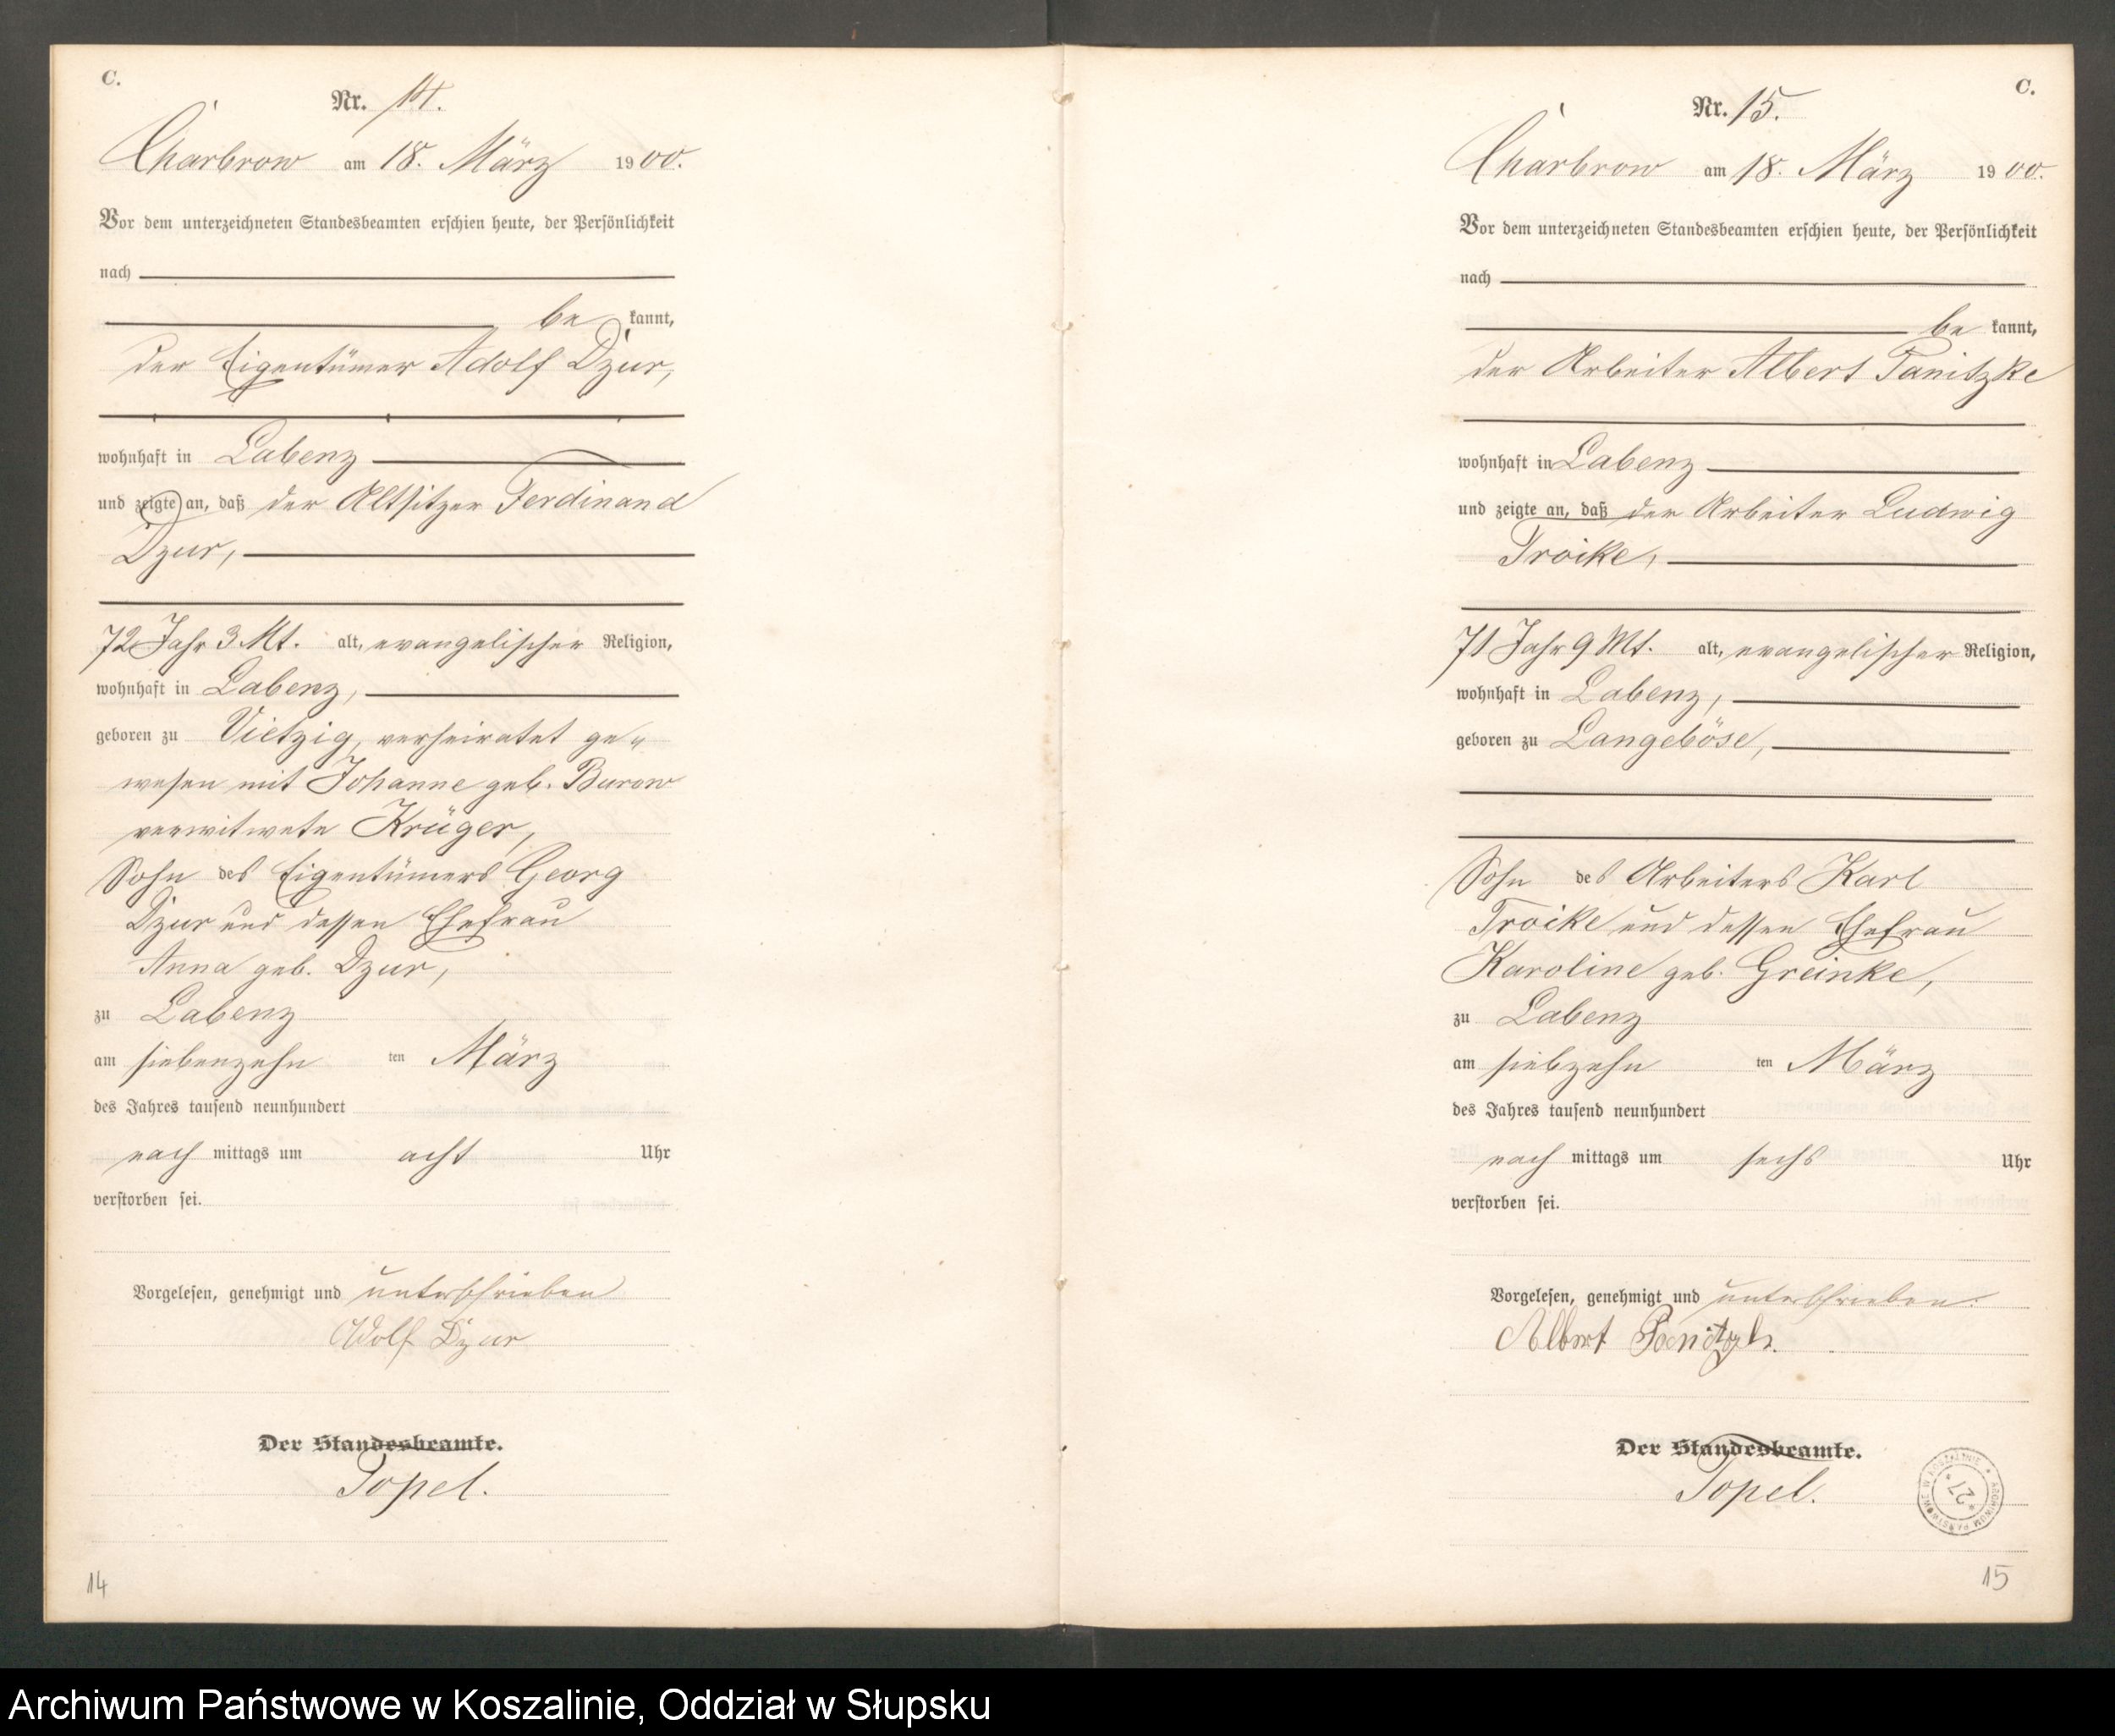 C.
Nr. 14.
Charbrow am 18. März 1900.
Vor dem unterzeichneten Standesbeamten erschien heute, der Persönlichkeit
nach
be kannt,
der Eigentümer Adolf Dzur,
wohnhaft in Labenz
und zeigte an, daß der Altsitzer Ferdinand
Dzur,
72 Jahr 3 Mt. alt, evangelischer Religion,
wohnhaft in Labenz,
geboren zu Vietzig, verheiratet ge„
wesen mit Johanne geb. Burow
verwitwete Krüger,
Sohn des Eigentümers Georg
Dzur und dessen Ehefrau
Anna geb. Dzur,
zu Labenz
am siebenzehn ten März
des Jahres tausend neunhundert
nach mittags um acht Uhr
verstorben sei.
Vorgelesen, genehmigt und unterschrieben
Adolf Dzur
Der Standesbeamte.
Topel.
14
C.
Nr. 15.
Charbrow am 18. März 1900.
Vor dem unterzeichneten Standesbeamten erschien heute, der Persönlichkeit
nach
be kannt,
der Arbeiter Albert Panitzke
wohnhaft in Labenz
und zeigte an, daß der Arbeiter Ludwig
Troike,
71 Jahr 9 Mt. alt, evangelischer Religion,
wohnhaft in Labenz,
geboren zu Langeböse,
Sohn des Arbeiters Karl
Troike und dessen Ehefrau
Karoline geb. Greinke,
zu Labenz
am siebzehn ten März
des Jahres tausend neunhundert
nach mittags um sechs Uhr
verstorben sei.
Vorgelesen, genehmigt und unterschrieben.
Albert
Der Standesbeamte.
Topel.
ARCHIWUM PAŃSTWOWE W KOSZALINIE
*27*
15
Archiwum Państwowe w Koszalinie, Oddział w Słupsku